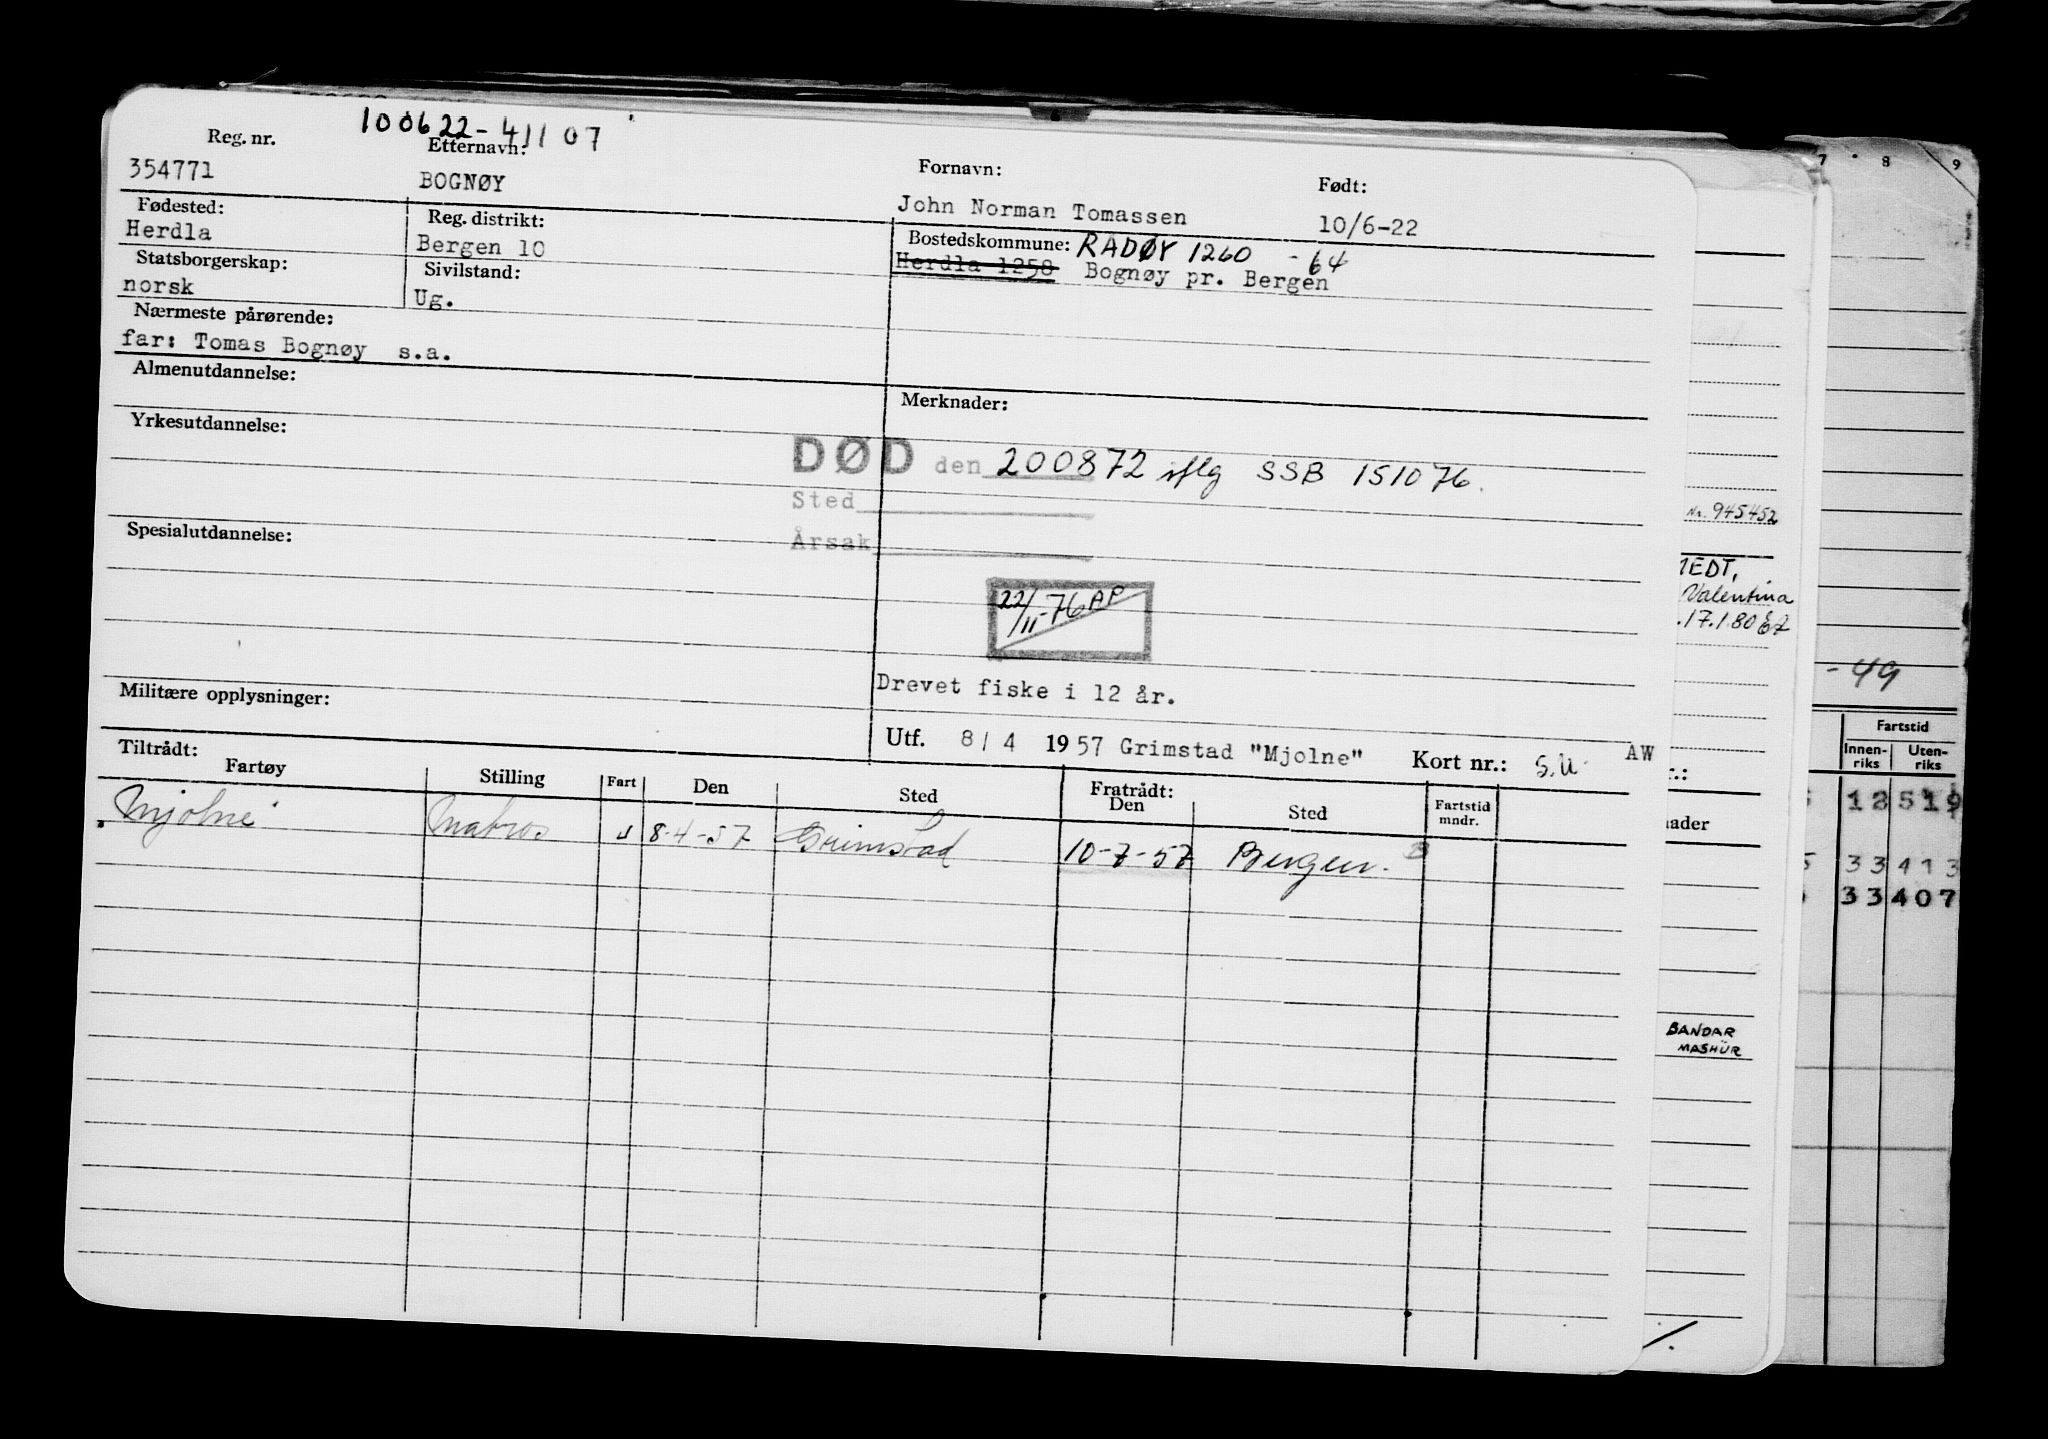 100622-41107
Reg. nr.
354771
Etternavn:
BOGNØY
Fornavn:
John Norman Tomassen
Født:
10/6-22
Fødested:
Herdla
Reg. distrikt:
Bergen 10
Bostedskommune: RADØY 1260 -64
Herdla 1258 Bognøy pr. Bergen
Statsborgerskap:
norsk
Sivilstand:
Ug.
Nærmeste pårørende:
far: Tomas Bognøy s.a.
Almenutdannelse:
Merknader:
Yrkesutdannelse:
DØD den 200872 iflg SSB 151076.
Sted
Årsak
Spesialutdannelse:
22/11-76 AP
Drevet fiske i 12 år.
Militære opplysninger:
Utf. 8/4 1957 Grimstad "Mjolne" Kort nr.: S.U. AW
Tiltrådt:
Fartøy Stilling Fart Den Sted Fratrådt: Den Sted Fartstid mndr.
Mjolne Matros U 8-4-57 Grimstad 10-7-57 Bergen. 3
7 8 9
Nr. 945452
MEDT,
Valentina
.17.1.80
-49
Fartstid
Innen-
riks
Uten-
riks
r.:
nader
12 519
33 413
33 407
BANDAR
MASHUR